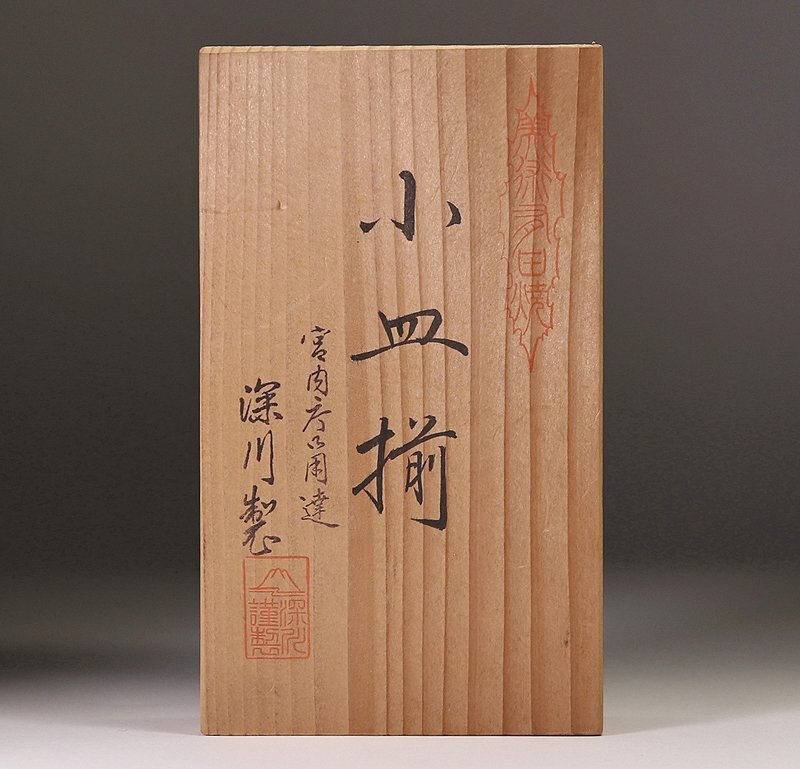 美術有田焼
小皿揃
宮内庁御用達
深川製
深川
謹製